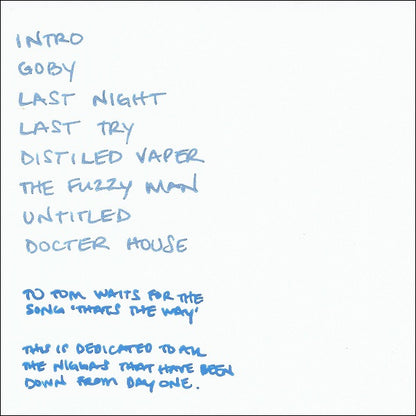 INTRO
GOBY
LAST NIGHT
LAST TRY
DISTILED VAPER
THE FUZZY MAN
UNTITLED
DOCTER HOUSE
TO TOM WAITS FOR THE
SONG 'THATS THE WAY'
THIS IS DEDICATED TO ALL
THE NIGGAS THAT HAVE BEEN
DOWN FROM DAY ONE.